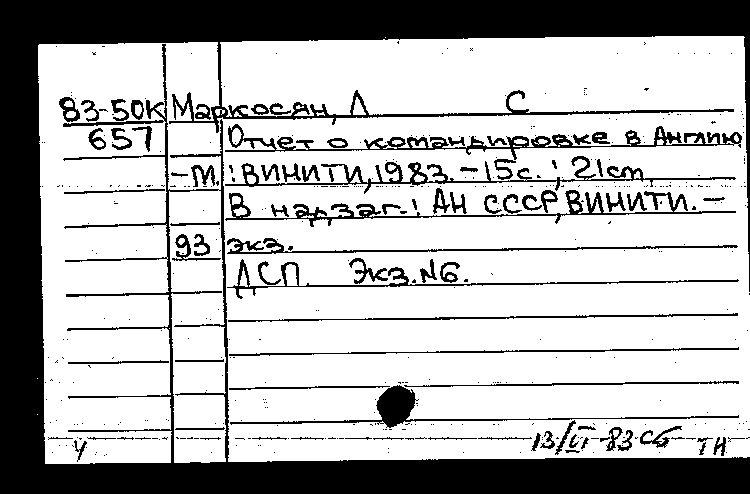 83-50К Маркосян, Л С
657 Отчет о командировке в Англию
-М.: ВИНИТИ, 1983. - 15с. ; 21cm
В надзаг.: АН СССР, ВИНИТИ. -
93 экз.
ДСП. Экз. N6.
13/VI-83 сб ТН
Ч